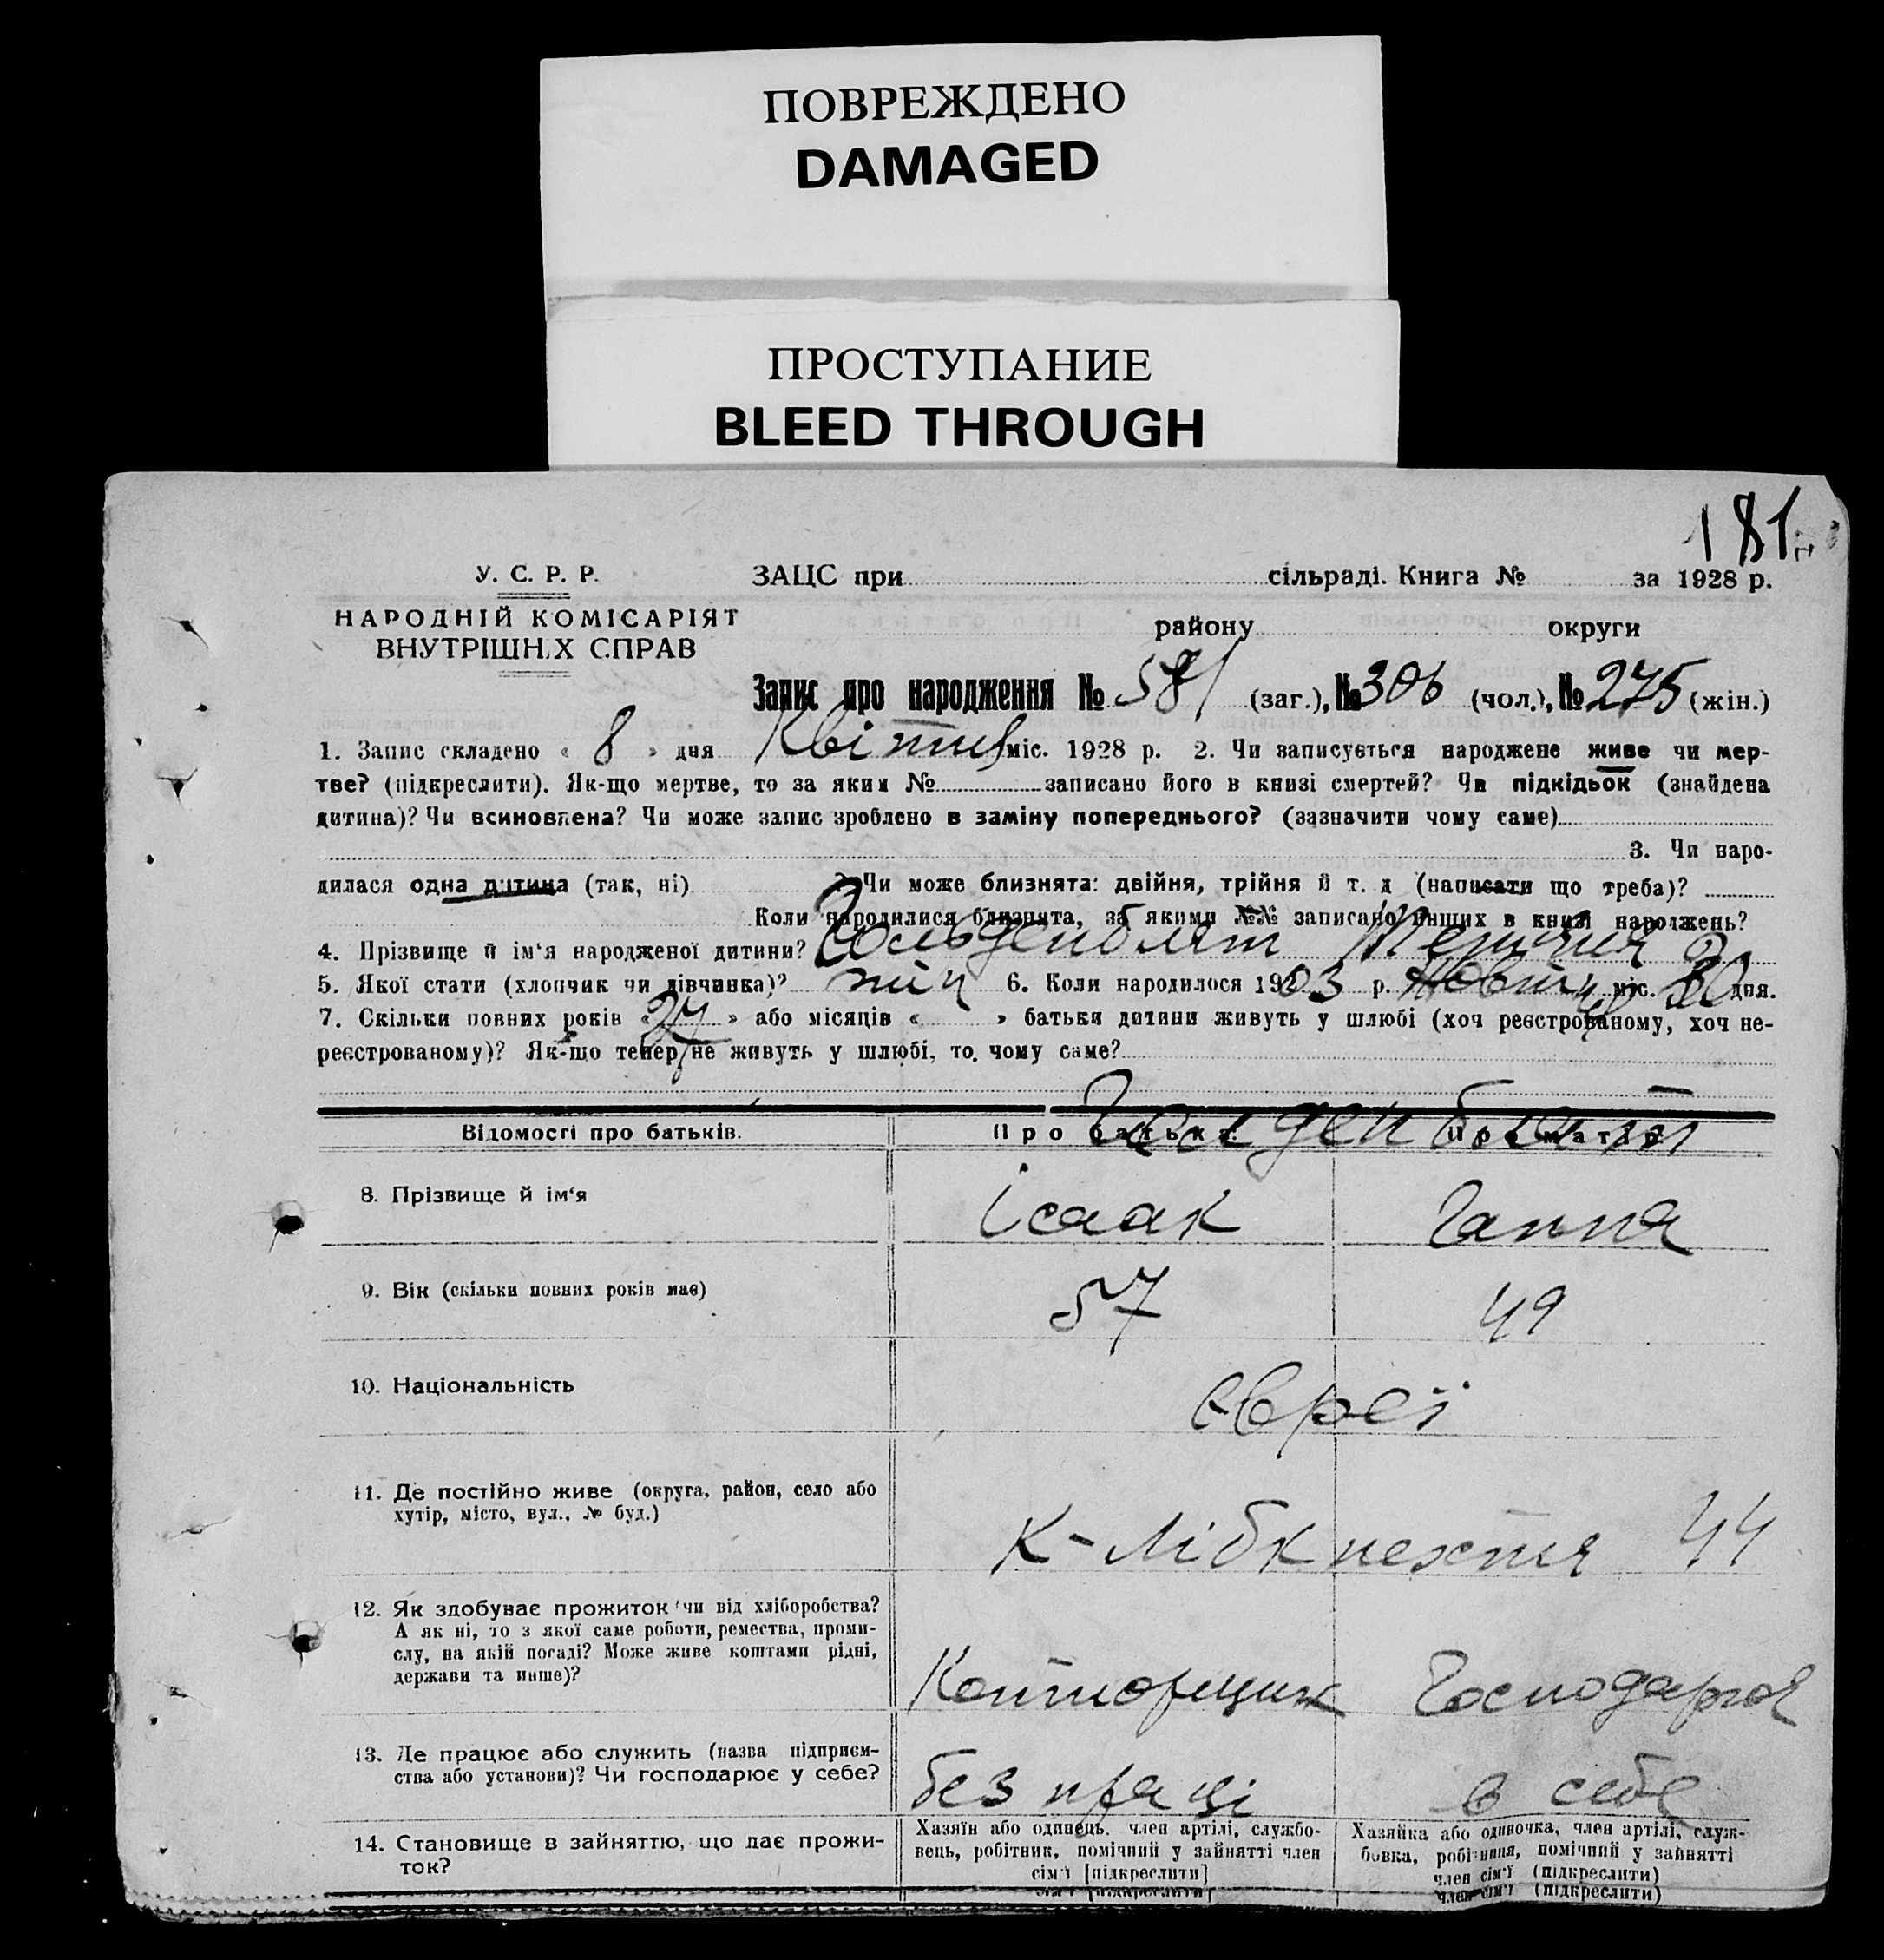 ПОВРЕЖДЕНО
DAMAGED
ПРОСТУПАНИЕ
BLEED THROUGH
181
У. С. Р. Р.
ЗАЦС при сільраді. Книга № за 1928 р.
НАРОДНІЙ КОМІСАРІЯТ
району округи
ВНУТРІШНІХ СПРАВ
Запис про народження № 581 (заг.), № 306 (чол.), № 275 (жін.)
1. Запис складено « 8 » дня Квітня міс. 1928 р. 2. Чи записується народжене живе чи мер-
тве? (підкреслити). Як-що мертве, то за яким № записано його в книзі смертей? Чи підкідьок (знайдена
дитина)? Чи всиновлена? Чи може запис зроблено в заміну попереднього? (зазначити чому саме)
3. Чи наро-
дилася одна дитина (так, ні) ? Чи може близнята: двійня, трійня й т. д (написати що треба)?
Коли народилися близнята, за якими №№ записано инших в книзі народжень?
4. Прізвище й ім‘я народженої дитини? Гольденблят
5. Якої стати (хлопчик чи дівчинка)? 6. Коли народилося 1903 р. Жовтня міс. дня.
7. Скільки повних років « 27 » або місяців « » батьки дитини живуть у шлюбі (хоч реєстрованому, хоч не-
реєстрованому)? Як-що тепер не живуть у шлюбі, то, чому саме?
Гольденблят
Відомості про батьків. Про батька. Про матір.
8. Прізвище й ім‘я Ісаак Ганна
9. Вік (скільки повних років має) 57 49
10. Національність Євреї
11. Де постійно живе (округа, район, село або
хутір, місто, вул., № буд.)
К-Лібкнехта 44
12. Як здобуває прожиток чи від хліборобства?
А як ні, то з якої саме роботи, ремества, проми-
слу, на якій посаді? Може живе коштами рідні,
держави та инше)?
Конторщик Господарка
13. Де працює або служить (назва підприєм-
ства або установи)? Чи господарює у себе?
без праці в себе
14. Становище в зайняттю, що дає прожи-
ток?
Хазяїн або одинець, член артілі, службо-
вець, робітник, помічний у зайнятті член
сім‘ї [підкреслити]
Хазяйка або одиночка, член артілі, служ-
бовка, робітниця, помічний у зайнятті
член сім‘ї (підкреслити)
член сім‘ї (підкреслити)